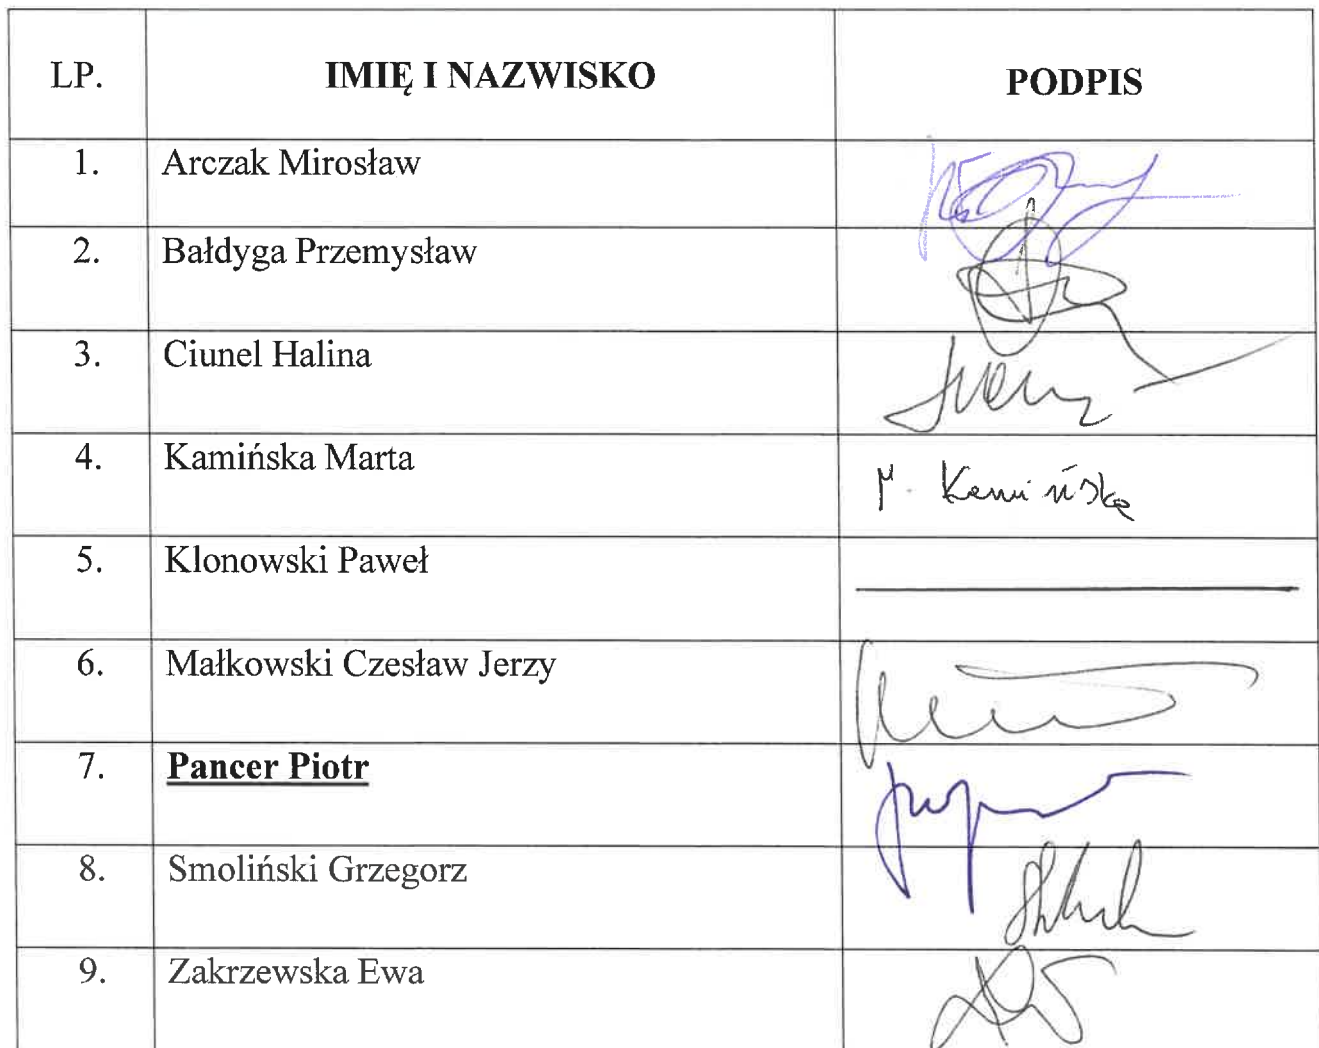 LP. IMIĘ I NAZWISKO PODPIS
1. Arczak Mirosław
2. Bałdyga Przemysław
3. Ciunel Halina
4. Kamińska Marta M. Kamińska
5. Klonowski Paweł
6. Małkowski Czesław Jerzy
7. Pancer Piotr
8. Smoliński Grzegorz
9. Zakrzewska Ewa